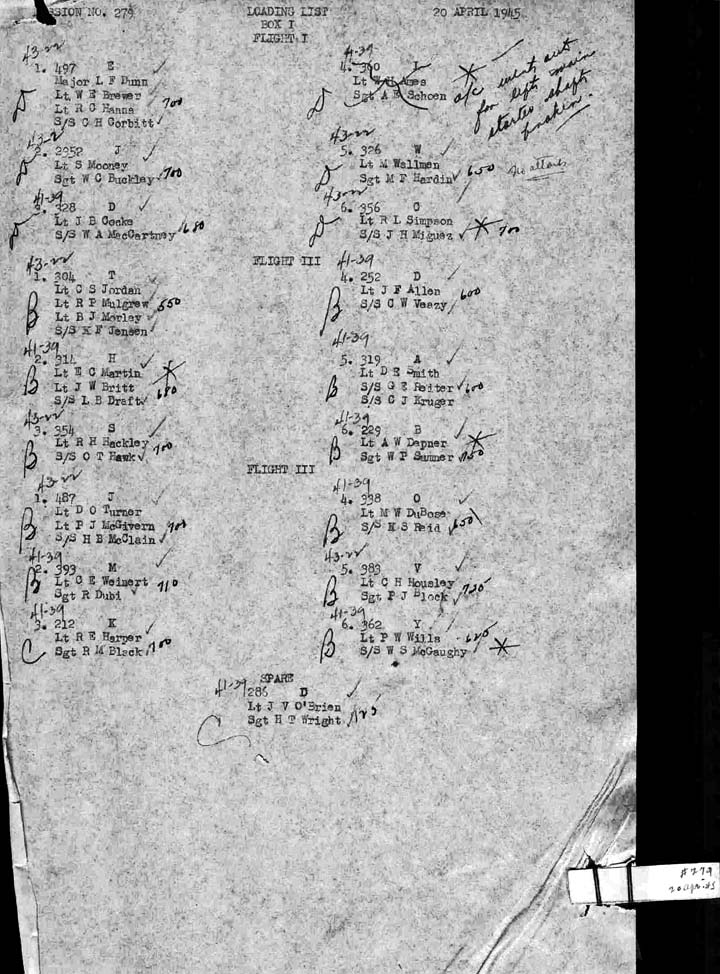 MISSION NO. 279 LOADING LIST 20 APRIL 1945
BOX I
FLIGHT I
43-22
1. 497 E
Major L F Dunn
Lt W E Brewer
Lt R C Hanna 700
S/S C H Corbitt
D
43-2
2. 2952 J
Lt S Mooney
Sgt W C Buckley 700
D
41-39
3. 328 D
Lt J B Cooke
S/S W A MacCartney 680
D
41-39
4. 360 L
Lt Ames
Sgt A E Schoen
D
a/c went out
for left main
starter shaft
broken.
43-22
5. 326 W
Lt M Wallman
Sgt M F Hardin 650
D
43-22
6. 956 C
Lt R L Simpson
S/S J H Miguez 700
D
FLIGHT III
43-22
1. 304 T
Lt C S Jordan
Lt R P Mulgrew 550
Lt B J Morley
S/S K F Jensen
B
41-39
2. 314 H
Lt E C Martin
Lt J W Britt
S/S L B Draft 680
B
43-22
3. 354 S
Lt R H Hackley
S/S O T Hawk 700
B
41-39
4. 252 D
Lt J F Allen
S/S C W Veazy 600
B
41-39
5. 319 A
Lt D E Smith
S/S G E Reiter 600
S/S C J Kruger
B
41-39
6. 229 B
Lt A W Depner
Sgt W P Sumner 750
B
FLIGHT III
43-22
1. 487 J
Lt D O Turner
Lt P J McGivern 700
S/S H B McClain
B
41-39
2. 393 M
Lt C E Weinert 710
Sgt R Dubi
B
41-39
3. 212 K
Lt R E Harper
Sgt R M Black 700
C
41-39
4. 338 O
Lt M W DuBose
S/S K S Reid 650
B
43-22
5. 983 V
Lt C H Housley
Sgt P J Block 725
B
41-39
6. 362 Y
Lt P W Wills 625
S/S W S McGaughy
B
SPARE
41-39
286 D
Lt J V O'Brien
Sgt H T Wright
C
#279
20 apr. 45